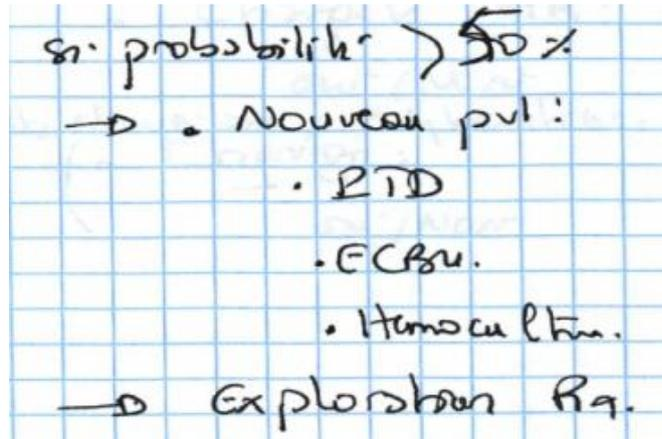 si probabilité > 50 %
→ • Nouveau pvt :
• PTD
• ECBU.
• Hemoculture.
→ Exploration Rq.